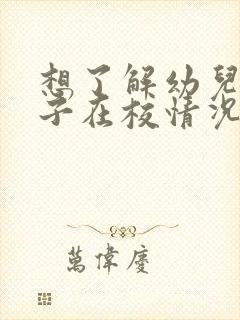 想了解幼兒
子在校情況
萬偉慶